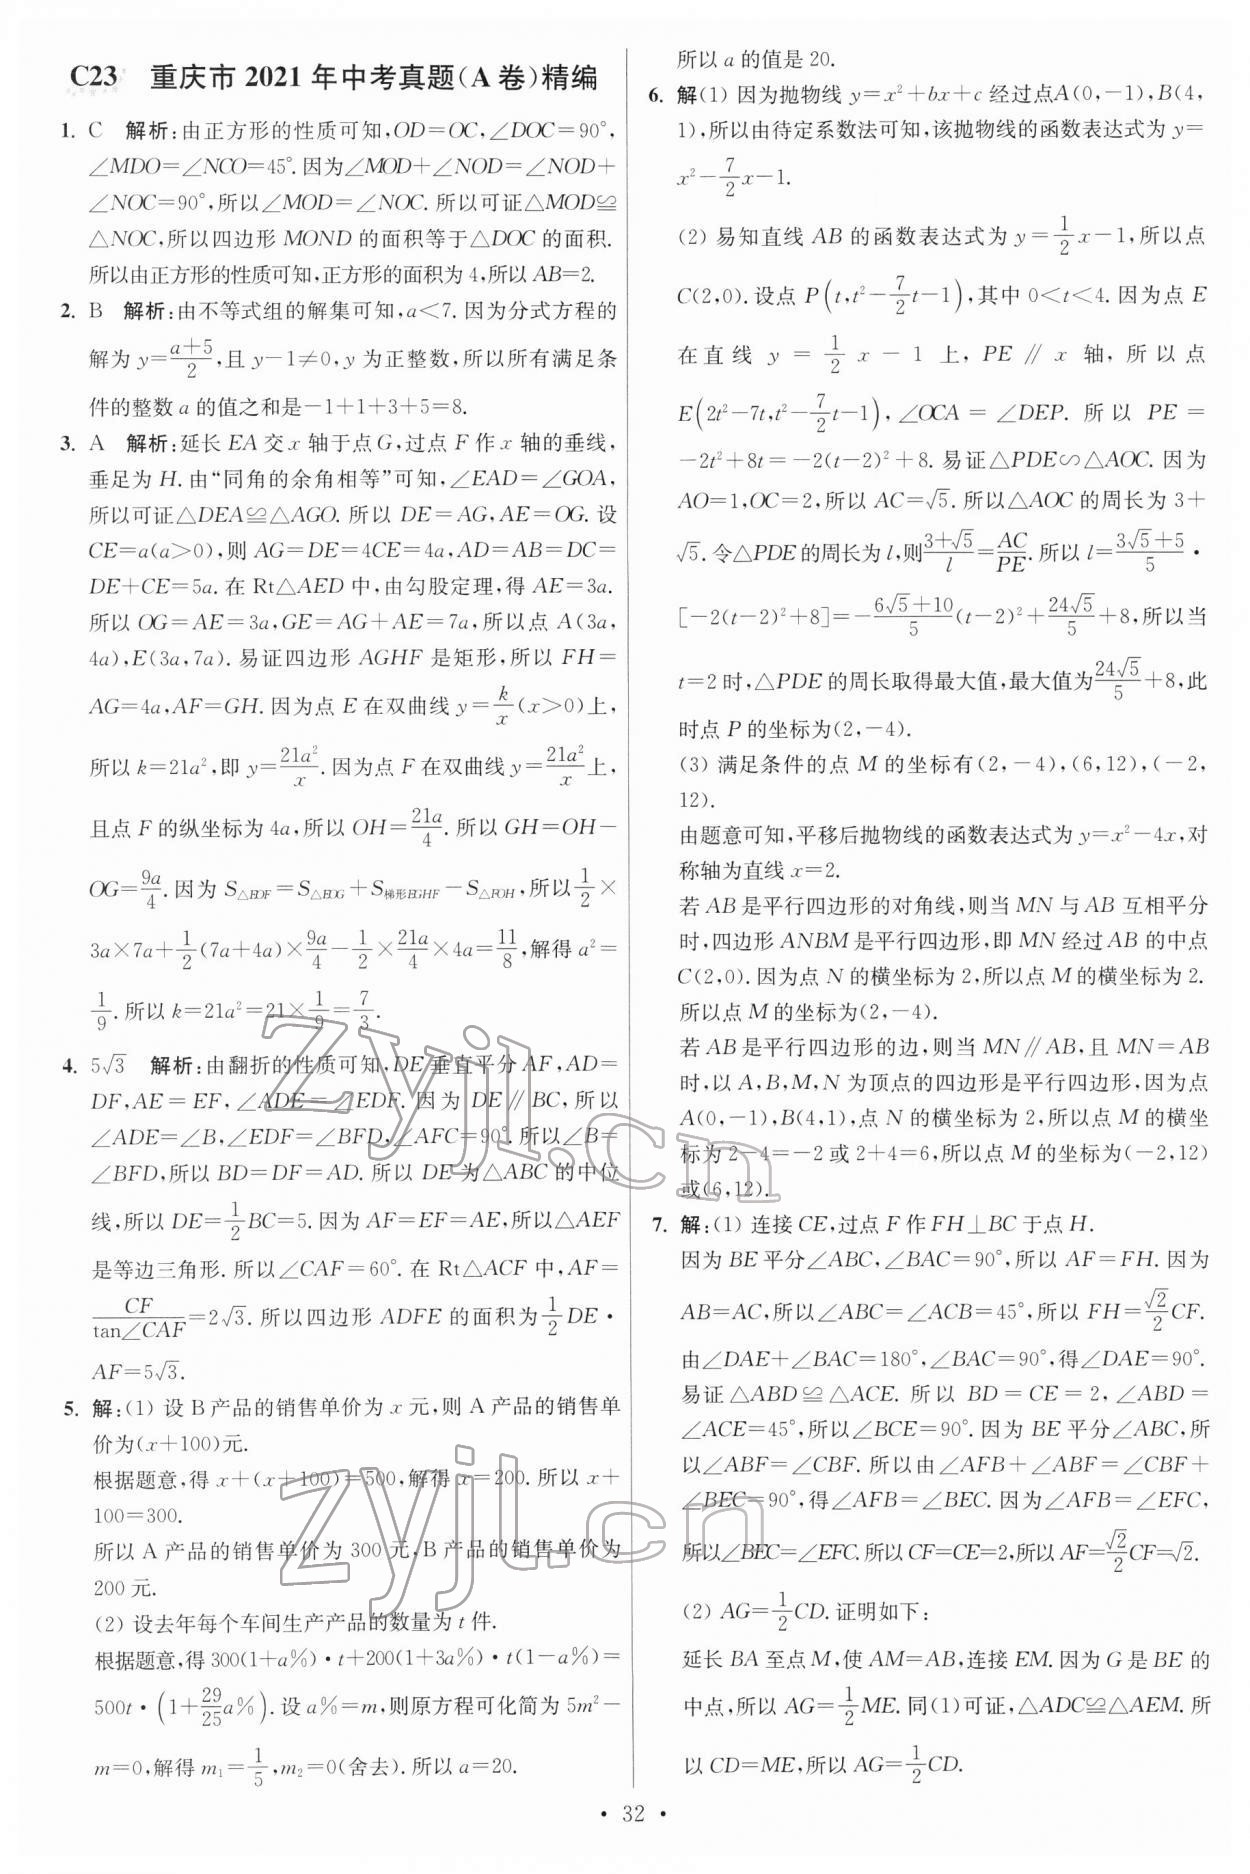 C23 重庆市 2021 年中考真题(A 卷)精编
1. C 解析:由正方形的性质可知,OD=OC,∠DOC=90°,
∠MDO=∠NCO=45°.因为∠MOD+∠NOD=∠NOD+
∠NOC=90°,所以∠MOD=∠NOC.所以可证△MOD≌
△NOC,所以四边形 MOND 的面积等于△DOC 的面积.
所以由正方形的性质可知,正方形的面积为 4,所以 AB=2.
2. B 解析:由不等式组的解集可知,a<7.因为分式方程的
解为 y=\frac{a+5}{2},且 y-1≠0,y 为正整数,所以所有满足条
件的整数 a 的值之和是-1+1+3+5=8.
3. A 解析:延长 EA 交 x 轴于点 G,过点 F 作 x 轴的垂线,
垂足为 H.由“同角的余角相等”可知,∠EAD=∠GOA,
所以可证△DEA≌△AGO.所以 DE=AG,AE=OG.设
CE=a(a>0),则 AG=DE=4CE=4a,AD=AB=DC=
DE+CE=5a.在 Rt△AED 中,由勾股定理,得 AE=3a.
所以 OG=AE=3a,GE=AG+AE=7a,所以点 A(3a,
4a),E(3a,7a).易证四边形 AGHF 是矩形,所以 FH=
AG=4a,AF=GH.因为点 E 在双曲线 y=\frac{k}{x}(x>0)上,
所以 k=21a²,即 y=\frac{21a²}{x}.因为点 F 在双曲线 y=\frac{21a²}{x}上,
且点 F 的纵坐标为 4a,所以 OH=\frac{21a}{4}.所以 GH=OH-
OG=\frac{9a}{4}.因为 S△EOF=S△EOG+S梯形EGHF-S△FOH,所以\frac{1}{2}×
3a×7a+\frac{1}{2}(7a+4a)×\frac{9a}{4}-\frac{1}{2}×\frac{21a}{4}×4a=\frac{11}{8},解得 a²=
\frac{1}{9}.所以 k=21a²=21×\frac{1}{9}=\frac{7}{3}.
4. 5√3 解析:由翻折的性质可知,DE 垂直平分 AF,AD=
DF,AE=EF,∠ADE=∠EDF.因为 DE∥BC,所以
∠ADE=∠B,∠EDF=∠BFD,∠AFC=90°.所以∠B=
∠BFD,所以 BD=DF=AD.所以 DE 为△ABC 的中位
线,所以 DE=\frac{1}{2}BC=5.因为 AF=EF=AE,所以△AEF
是等边三角形.所以∠CAF=60°.在 Rt△ACF 中,AF=
\frac{CF}{tan∠CAF}=2√3.所以四边形 ADFE 的面积为\frac{1}{2}DE·
AF=5√3.
5. 解:(1) 设 B 产品的销售单价为 x 元,则 A 产品的销售单
价为(x+100)元.
根据题意,得 x+(x+100)=500,解得 x=200.所以 x+
100=300.
所以 A 产品的销售单价为 300 元,B 产品的销售单价为
200 元.
(2) 设去年每个车间生产产品的数量为 t 件.
根据题意,得 300(1+a%)·t+200(1+3a%)·t(1-a%)=
500t·(1+\frac{29}{25}a%).设 a%=m,则原方程可化简为 5m²-
m=0,解得 m₁=\frac{1}{5},m₂=0(舍去).所以 a=20.
所以 a 的值是 20.
6. 解(1) 因为抛物线 y=x²+bx+c 经过点A(0,-1),B(4,
1),所以由待定系数法可知,该抛物线的函数表达式为 y=
x²-\frac{7}{2}x-1.
(2) 易知直线 AB 的函数表达式为 y=\frac{1}{2}x-1,所以点
C(2,0).设点 P(t,t²-\frac{7}{2}t-1),其中 0<t<4.因为点 E
在直线 y=\frac{1}{2}x-1 上,PE∥x 轴,所以点
E(2t²-7t,t²-\frac{7}{2}t-1),∠OCA=∠DEP.所以 PE=
-2t²+8t=-2(t-2)²+8.易证△PDE∽△AOC.因为
AO=1,OC=2,所以 AC=√5.所以△AOC 的周长为 3+
√5.令△PDE的周长为 l,则\frac{3+√5}{l}=\frac{AC}{PE}.所以 l=\frac{3√5+5}{5}·
[-2(t-2)²+8]=-\frac{6√5+10}{5}(t-2)²+\frac{24√5}{5}+8,所以当
t=2 时,△PDE 的周长取得最大值,最大值为\frac{24√5}{5}+8,此
时点 P 的坐标为(2,-4).
(3) 满足条件的点 M 的坐标有(2,-4),(6,12),(-2,
12).
由题意可知,平移后抛物线的函数表达式为 y=x²-4x,对
称轴为直线 x=2.
若 AB 是平行四边形的对角线,则当 MN 与 AB 互相平分
时,四边形 ANBM 是平行四边形,即 MN 经过 AB 的中点
C(2,0).因为点 N 的横坐标为 2,所以点 M 的横坐标为 2.
所以点 M 的坐标为(2,-4).
若 AB 是平行四边形的边,则当 MN∥AB,且 MN=AB
时,以 A,B,M,N 为顶点的四边形是平行四边形,因为点
A(0,-1),B(4,1),点 N 的横坐标为 2,所以点 M 的横坐
标为 2-4=-2 或 2+4=6,所以点 M 的坐标为(-2,12)
或(6,12).
7. 解:(1) 连接 CE,过点 F 作 FH⊥BC 于点 H.
因为 BE 平分∠ABC,∠BAC=90°,所以 AF=FH.因为
AB=AC,所以∠ABC=∠ACB=45°,所以 FH=\frac{√2}{2}CF.
由∠DAE+∠BAC=180°,∠BAC=90°,得∠DAE=90°.
易证△ABD≌△ACE.所以 BD=CE=2,∠ABD=
∠ACE=45°,所以∠BCE=90°.因为 BE 平分∠ABC,所
以∠ABF=∠CBF.所以由∠AFB+∠ABF=∠CBF+
∠BEC=90°,得∠AFB=∠BEC.因为∠AFB=∠EFC,
所以∠BEC=∠EFC.所以 CF=CE=2,所以 AF=\frac{√2}{2}CF=√2.
(2) AG=\frac{1}{2}CD.证明如下:
延长 BA 至点 M,使 AM=AB,连接 EM.因为 G 是 BE 的
中点,所以 AG=\frac{1}{2}ME.同(1)可证,△ADC≌△AEM.所
以 CD=ME,所以 AG=\frac{1}{2}CD.
· 32 ·
zyjl.cn
zyjl.cn